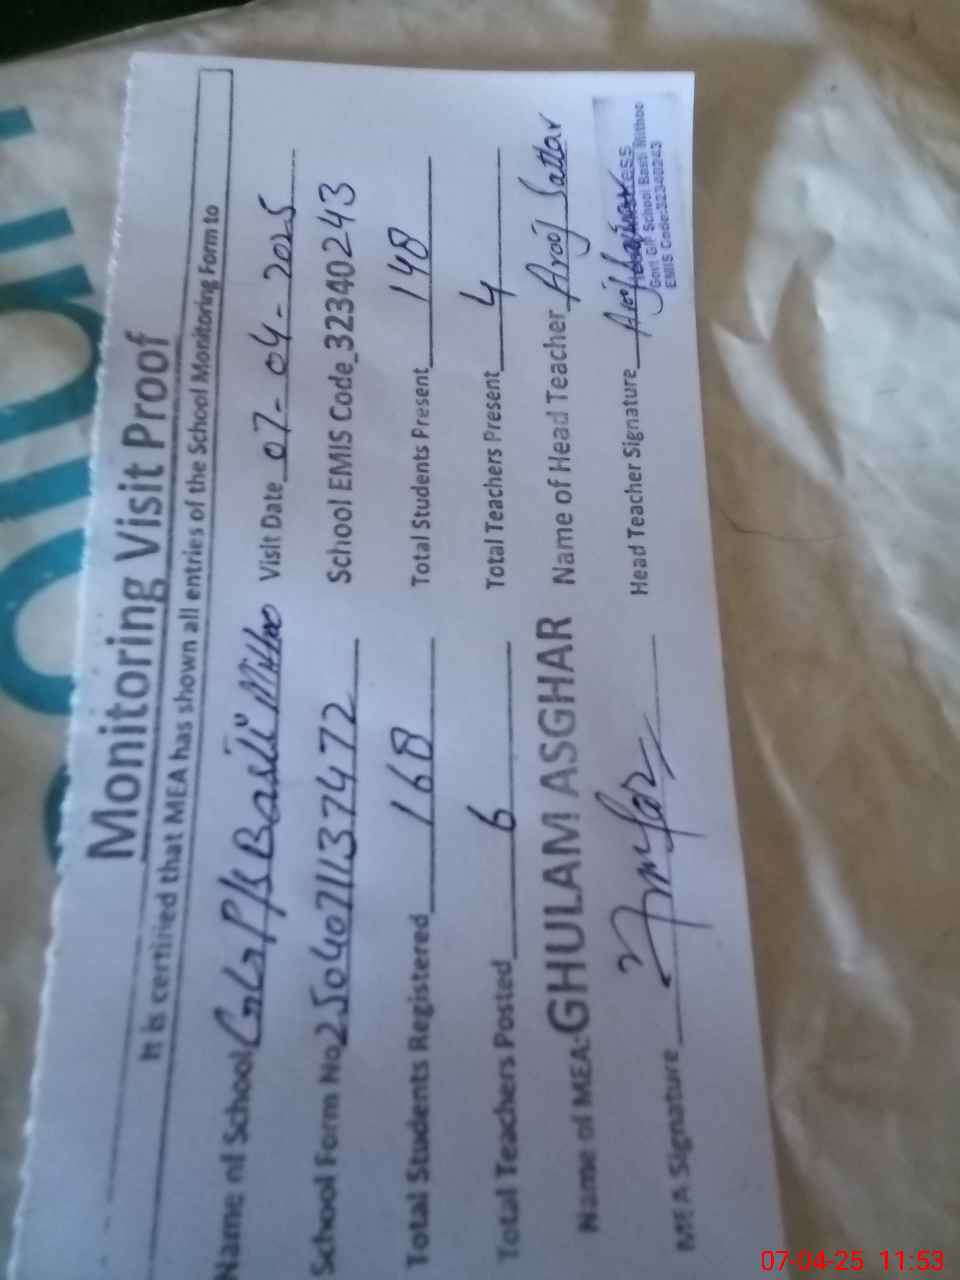 Monitoring Visit Proof
It is certified that MEA has shown all entries of the School Monitoring Form to
Name of School GGP/S Basti Mithoo Visit Date 07-04-2025
School Form No 2504071137472 School EMIS Code 32340243
Total Students Registered 168 Total Students Present 148
Total Teachers Posted 6 Total Teachers Present 4
Name of MEA: GHULAM ASGHAR Name of Head Teacher Arooj Sattar
MEA Signature Head Teacher Signature Arooj
Govt G/P School Basti Mithoo
EMIS Code:32340243
07-04-25 11:53